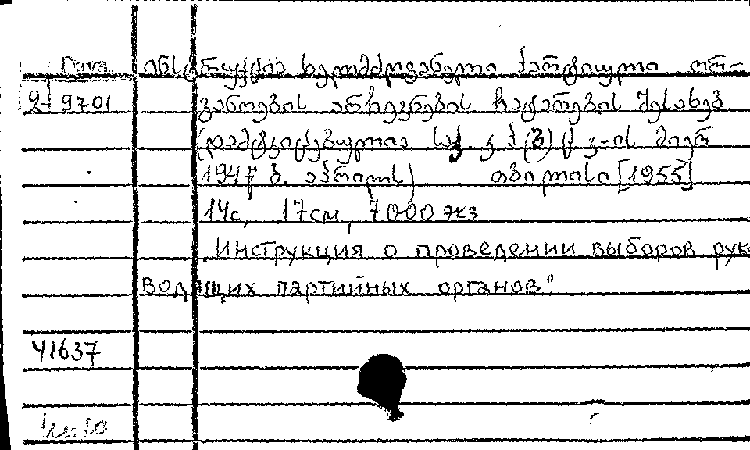 ინსტრუქცია ხელმძღვანელი პარტიული ორ-
2-9701 განოების არჩევნების ჩატარების შესახებ
(დამტკიცებულია საქ. კ.პ(ბ) ც.კ-ის მიერ
1947 წ. აპრილს) თბილისი [1955]
14с, 17см, 7000 экз
„Инструкция о проведении выборов рук
водящих партийных органов"
41637